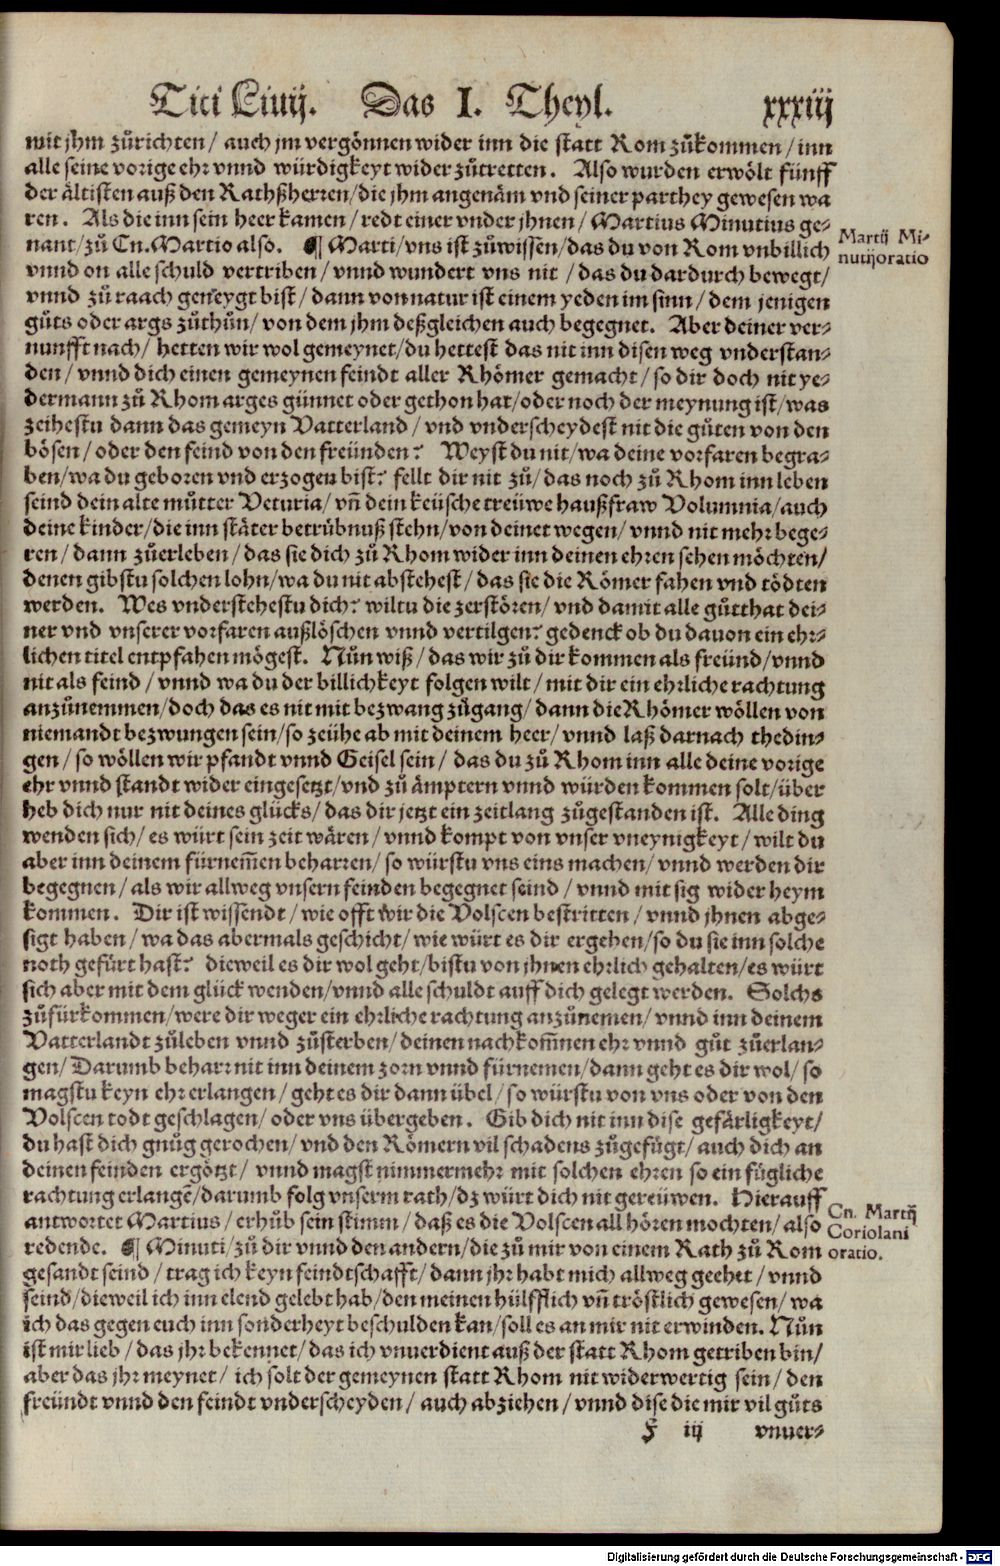 Titi Liuij. Das I. Theyl. xxxiij
mit jhm zůrichten / auch jm vergönnen wider inn die statt Rom zůkommen / inn
alle seine vorige ehr vnnd würdigkeyt wider zůtretten. Also wurden erwölt fünff
der ältisten auß den Rathßherren / die jhm angenäm vnd seiner parthey gewesen wa
ren. Als die inn sein heer kamen / redt einer vnder jhnen / Martius Minutius ge-
nant / zů Cn. Martio also. ¶ Marti / vns ist zůwissen / das du von Rom vnbillich
Martij Mi-
nutij oratio
vnnd on alle schuld vertriben / vnnd wundert vns nit / das du dardurch bewegt /
vnnd zů raach geneygt bist / dann von natur ist einem yeden im sinn / dem jenigen
gůts oder args zůthůn / von dem jhm deßgleichen auch begegnet. Aber deiner ver-
nunfft nach / hetten wir wol gemeynet / du hettest das nit inn disen weg vnderstan-
den / vnnd dich einen gemeynen feindt aller Rhömer gemacht / so dir doch nit ye-
dermann zů Rhom arges günnet oder gethon hat / oder noch der meynung ist / was
zeihestu dann das gemeyn Vatterland / vnd vnderscheydest nit die gůten von den
bösen / oder den feind von den freünden? Weyst du nit / wa deine vorfaren begra-
ben / wa du geboren vnd erzogen bist? fellt dir nit zů / das noch zů Rhom inn leben
seind dein alte můtter Veturia / vñ dein keüsche treüwe haußfraw Volumnia / auch
deine kinder / die inn stäter betrübnuß stehn / von deinet wegen / vnnd nit mehr bege-
ren / dann zůerleben / das sie dich zů Rhom wider inn deinen ehren sehen möchten /
denen gibstu solchen lohn / wa du nit abstehest / das sie die Römer fahen vnd tödten
werden. Wes vnderstehestu dich? wiltu die zerstören / vnd damit alle gůtthat dei-
ner vnd vnserer vorfaren außlöschen vnnd vertilgen? gedenck ob du dauon ein ehr-
lichen titel entpfahen mögest. Nůn wiß / das wir zů dir kommen als freünd / vnnd
nit als feind / vnnd wa du der billichkeyt folgen wilt / mit dir ein ehrliche rachtung
anzůnemmen / doch das es nit mit bezwang zůgang / dann die Rhömer wöllen von
niemandt bezwungen sein / so zeühe ab mit deinem heer / vnnd laß darnach thedin-
gen / so wöllen wir pfandt vnnd Geisel sein / das du zů Rhom inn alle deine vorige
ehr vnnd standt wider eingesetzt / vnd zů ämptern vnnd würden kommen solt / über
heb dich nur nit deines glücks / das dir jetzt ein zeitlang zůgestanden ist. Alle ding
wenden sich / es würt sein zeit wären / vnnd kompt von vnser vneynigkeyt / wilt du
aber inn deinem fürnem̃en beharren / so würstu vns eins machen / vnnd werden dir
begegnen / als wir allweg vnsern feinden begegnet seind / vnnd mit sig wider heym
kommen. Dir ist wissendt / wie offt wir die Volscen bestritten / vnnd jhnen abge-
sigt haben / wa das abermals geschicht / wie würt es dir ergehen / so du sie inn solche
noth gefürt hast? dieweil es dir wol geht / bistu von jhnen ehrlich gehalten / es würt
sich aber mit dem glück wenden / vnnd alle schuldt auff dich gelegt werden. Solchs
zůfürkommen / were dir weger ein ehrliche rachtung anzůnemen / vnnd inn deinem
Vatterlandt zůleben vnnd zůsterben / deinen nachkom̃nen ehr vnnd gůt zůerlan-
gen / Darumb beharr nit inn deinem zorn vnnd fürnemen / dann geht es dir wol / so
magstu keyn ehr erlangen / geht es dir dann übel / so würstu von vns oder von den
Volscen todt geschlagen / oder vns übergeben. Gib dich nit inn dise gefärligkeyt /
du hast dich gnůg gerochen / vnd den Römern vil schadens zůgefügt / auch dich an
deinen feinden ergötzt / vnnd magst nimmermehr mit solchen ehren so ein fügliche
rachtung erlangẽ / darumb folg vnserm rath / dz würt dich nit gereüwen. Hierauff
antwortet Martius / erhůb sein stimm / daß es die Volscen all hören mochten / also
redende. ¶ Minuti / zů dir vnnd den andern / die zů mir von einem Rath zů Rom
Cn. Martij
Coriolani
oratio.
gesandt seind / trag ich keyn feindtschafft / dann jhr habt mich allweg geehet / vnnd
seind / dieweil ich inn elend gelebt hab / den meinen hülfflich vñ tröstlich gewesen / wa
ich das gegen euch inn sonderheyt beschulden kan / soll es an mir nit erwinden. Nůn
ist mir lieb / das jhr bekennet / das ich vnuerdient auß der statt Rhom getriben bin /
aber das jhr meynet / ich solt der gemeynen statt Rhom nit widerwertig sein / den
freündt vnnd den feindt vnderscheyden / auch abziehen / vnnd dise die mir vil gůts
F iij vnuer-
Digitalisierung gefördert durch die Deutsche Forschungsgemeinschaft - DFG